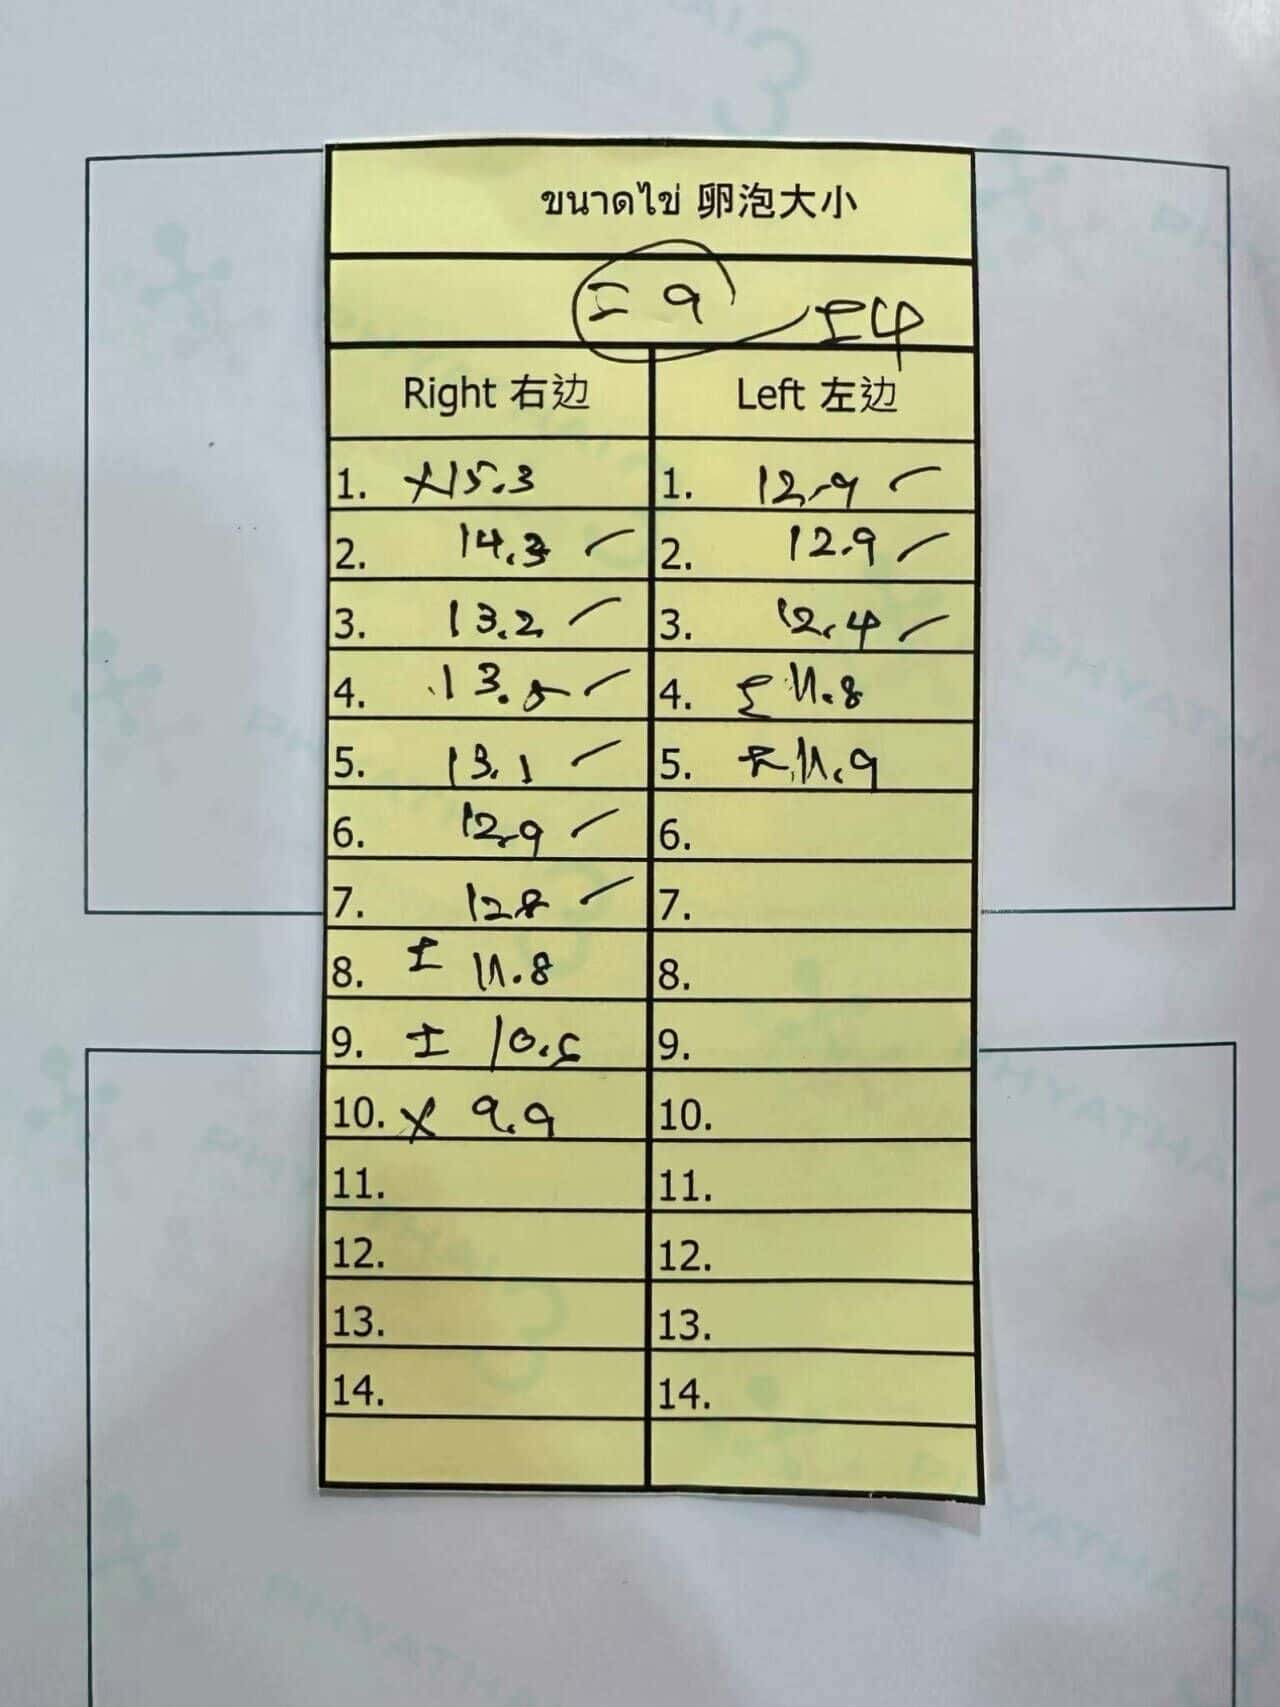 ขนาดไข่ 卵泡大小
± 9 ±4
Right 右边 Left 左边
1. ×15.3 1. 12.9 ✓
2. 14.3 ✓ 2. 12.9 ✓
3. 13.2 ✓ 3. 12.4 ✓
4. 13.5 ✓ 4. ± 11.8
5. 13.1 ✓ 5. 11.9
6. 12.9 ✓ 6.
7. 12.8 ✓ 7.
8. ± 11.8 8.
9. ± 10.5 9.
10. × 9.9 10.
11. 11.
12. 12.
13. 13.
14. 14.